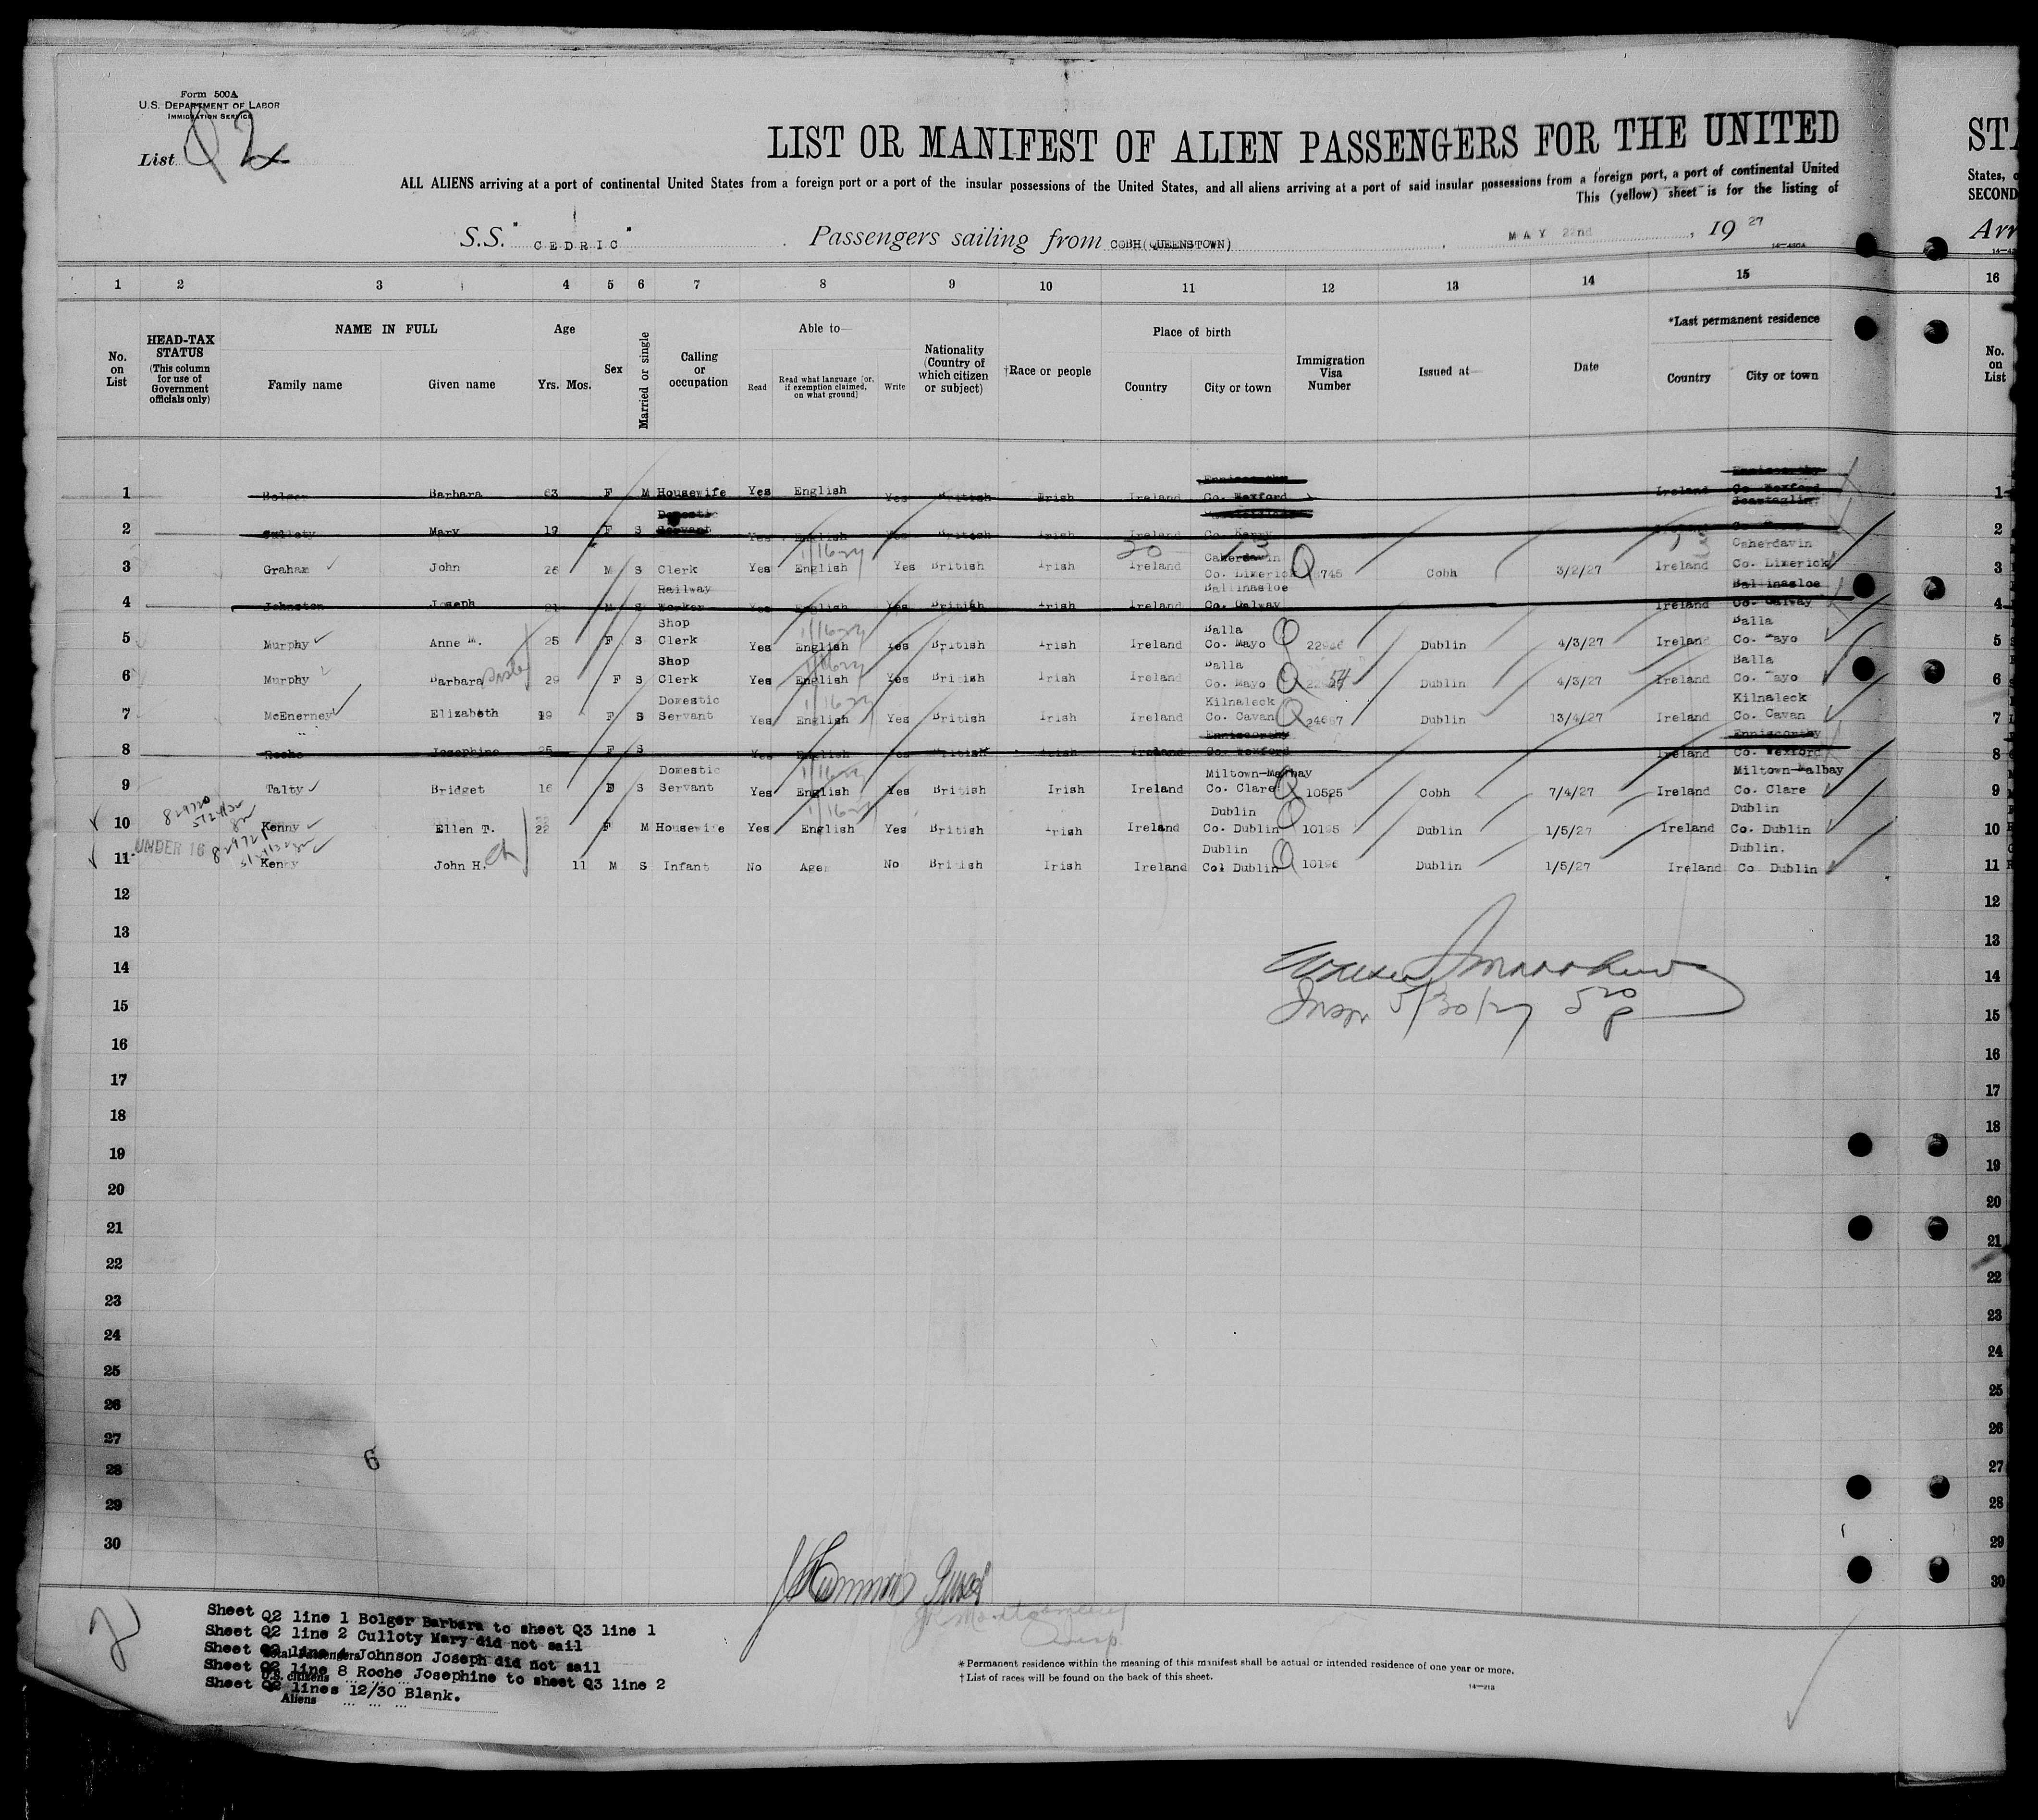 Form 500A
U.S. DEPARTMENT OF LABOR
IMMIGRATION SERVICE
List Q2
LIST OR MANIFEST OF ALIEN PASSENGERS FOR THE UNITED
ALL ALIENS arriving at a port of continental United States from a foreign port or a port of the insular possessions of the United States, and all aliens arriving at a port of said insular possessions from a foreign port, a port of continental United
This (yellow) sheet is for the listing of
S.S. "CEDRIC" Passengers sailing from COBH(QUEENSTOWN), MAY 22nd, 1927
14—430A
STA
States, o
SECOND
Arr
1 2 3 4 5 6 7 8 9 10 11 12 13 14 15 16
No. on List
HEAD-TAX STATUS (This column for use of Government officials only)
NAME IN FULL
Family name Given name
Age
Yrs. Mos.
Sex
Married or single
Calling or occupation
Able to—
Read
Read what language [or, if exemption claimed, on what ground]
Write
Nationality (Country of which citizen or subject)
†Race or people
Place of birth
Country City or town
Immigration Visa Number
Issued at—
Date
*Last permanent residence
Country City or town
No. on List
1 Bolger Barbara 63 F M Housewife Yes English Yes British Irish Ireland Enniscorthy Co. Wexford Ireland Enniscorthy Co. Wexford 1
2 Culloty Mary 19 F S Domestic Servant Yes English Yes British Irish Ireland Co. Kerry 2
3 Graham John 26 M S Clerk Yes English Yes British Irish Ireland Caherdavin Co. Limerick Q 745 Cobh 3/2/27 Ireland Caherdavin Co. Limerick 3
4 Johnston Joseph 21 M S Railway Worker Yes English Yes British Irish Ireland Ballinasloe Co. Galway Ireland Ballinasloe Co. Galway 4
5 Murphy Anne M. 25 F S Shop Clerk Yes English Yes British Irish Ireland Balla Co. Mayo Q Dublin 4/3/27 Ireland Balla Co. Mayo 5
6 Murphy Barbara 29 F S Shop Clerk Yes English Yes British Irish Ireland Balla Co. Mayo Q Dublin 4/3/27 Ireland Balla Co. Mayo 6
7 McEnerney Elizabeth 19 F S Domestic Servant Yes English Yes British Irish Ireland Kilnaleck Co. Cavan Q Dublin 13/4/27 Ireland Kilnaleck Co. Cavan 7
8 Roche Josephine 25 F S Yes English Yes British Irish Ireland Enniscorthy Co. Wexford Ireland Enniscorthy Co. Wexford 8
9 Talty Bridget 16 F S Domestic Servant Yes English Yes British Irish Ireland Miltown-Malbay Co. Clare Q 10525 Cobh 7/4/27 Ireland Miltown-Malbay Co. Clare 9
10 Kenny Ellen T. 22 F M Housewife Yes English Yes British Irish Ireland Dublin Co. Dublin Q 10195 Dublin 1/5/27 Ireland Dublin Co. Dublin 10
11 UNDER 16 Kenny John H. 11 M S Infant No Age No British Irish Ireland Dublin Co. Dublin Q 10196 Dublin 1/5/27 Ireland Dublin. Co Dublin 11
12 12
13 13
14 14
Insp. 5/30/27 5 20 p
15 15
16 16
17 17
18 18
19 19
20 20
21 21
22 22
23 23
24 24
25 25
26 26
27 27
6
28 28
29 29
30 30
2
Sheet Q2 line 1 Bolger Barbara to sheet Q3 line 1
Sheet Q2 line 2 Culloty Mary did not sail
Sheet Q2 line 4 Johnson Joseph did not sail
Total Passengers
Sheet Q2 line 8 Roche Josephine to sheet Q3 line 2
U.S. citizens
Sheet Q2 lines 12/30 Blank.
Aliens
*Permanent residence within the meaning of this manifest shall be actual or intended residence of one year or more.
†List of races will be found on the back of this sheet.
14—213